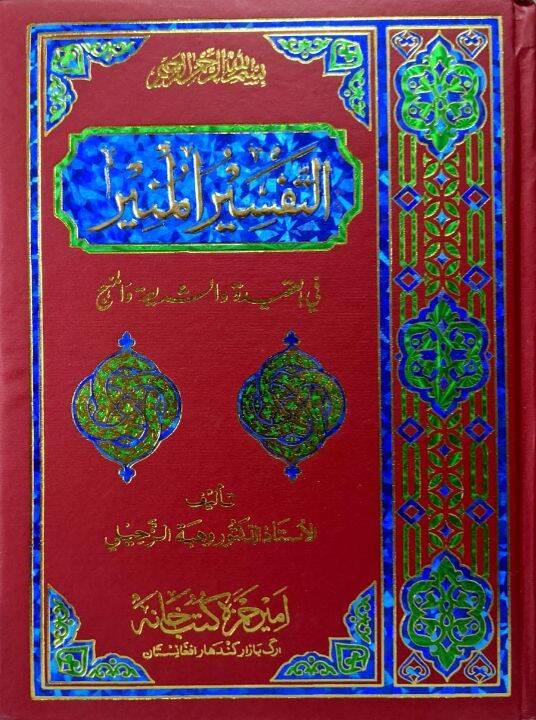 بسم الله الرحمن الرحيم
التَّفسِيرُ المُنِير
في العقيدة والشريعة والمنهج
تأليف
الأستاذ الدكتور وهبة الزحيلي
امير حمزه كتب خانه
ارگ بازار كندهار افغانستان